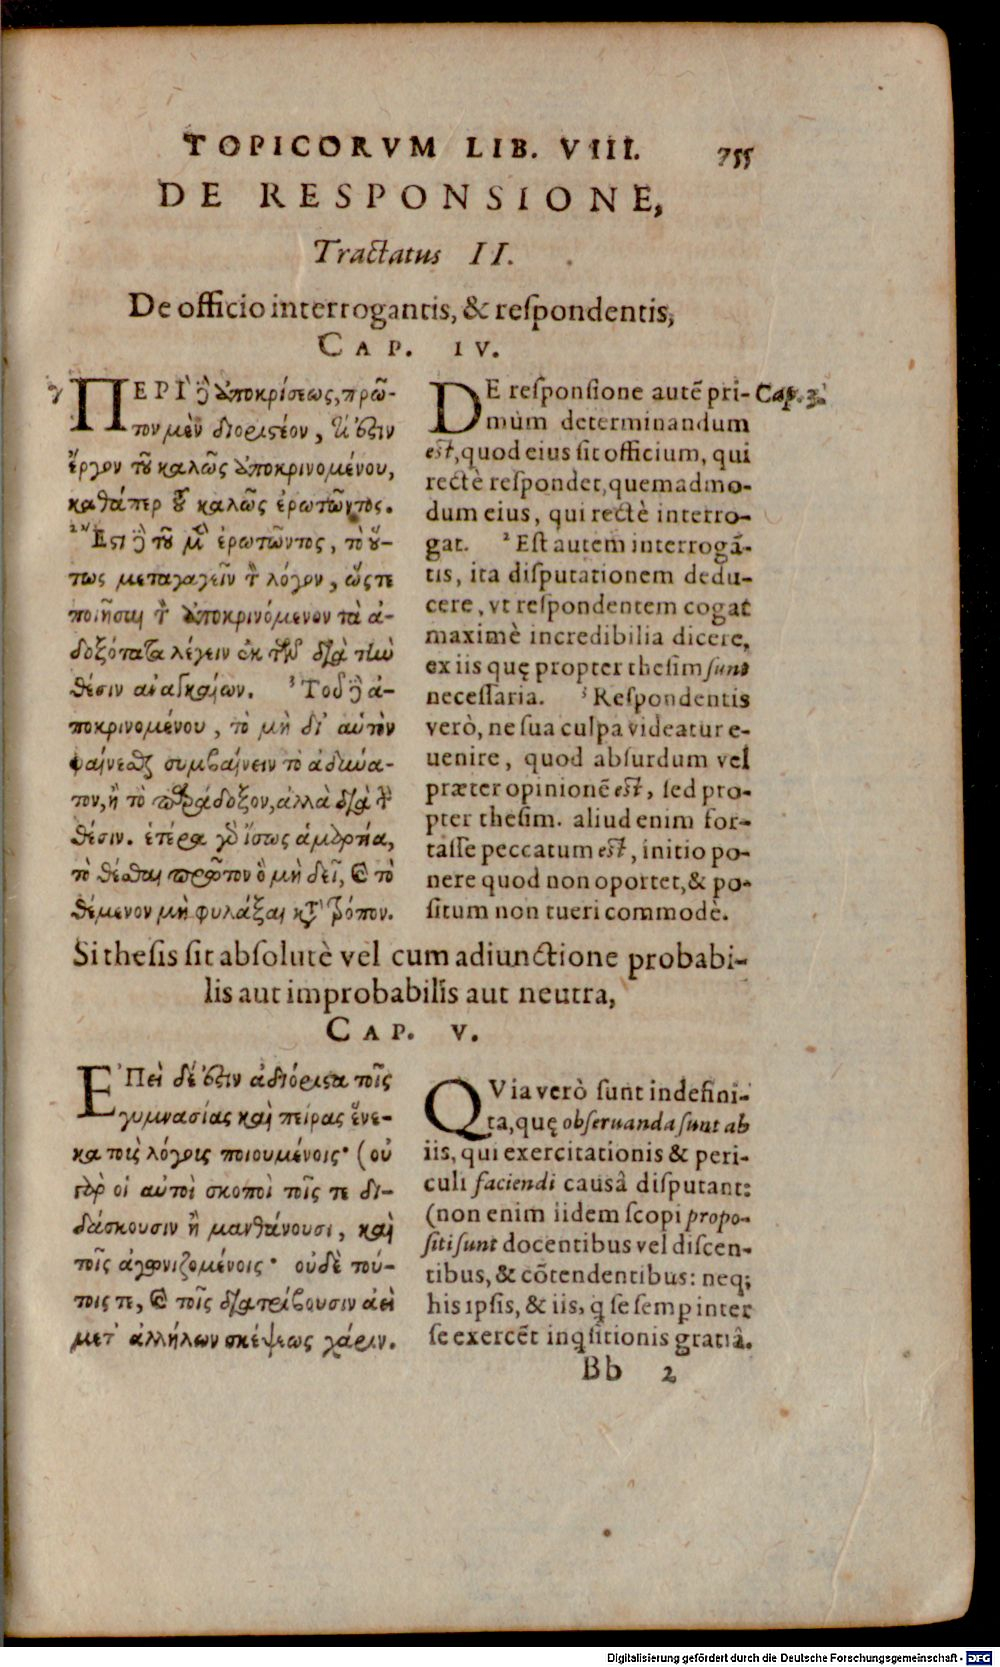 TOPICORVM LIB. VIII. 755
DE RESPONSIONE,
Tractatus II.
De officio interrogantis, & reſpondentis,
CAP. IV.
γ
ΠΕΡΙ ̀ δὲ ἀποκρίσεως, πρῶ-
τον μὲν διοριστέον, τί ἐστιν
ἔργον τοῦ καλῶς ἀποκρινομένου,
καθάπερ τοῦ καλῶς ἐρωτῶντος.
² Ἔστι δὲ τοῦ μὲν ἐρωτῶντος, τὸ οὕ-
τως μεταγαγεῖν τὸν λόγον, ὥςτε
ποιῆσαι τὸν ἀποκρινόμενον τὰ ἀ-
δοξότατα λέγειν ἐκ τῶν διὰ τὴν
θέσιν ἀναγκαίων. ³ Τοῦ δὲ ἀ-
ποκρινομένου, τὸ μὴ δι' αὐτὸν
φαίνεσθαι συμβαίνειν τὸ ἀδύνα-
τον, ἢ τὸ παράδοξον, ἀλλὰ διὰ τὴν
θέσιν. ἑτέρα γὰρ ἴσως ἁμαρτία,
τὸ θέσθαι πρῶτον ὃ μὴ δεῖ, καὶ τὸ
θέμενον μὴ φυλάξαι κατὰ τρόπον.
DE reſponſione autē pri- Cap. 3.
mùm determinandum
eſt, quod eius ſit officium, qui
rectè reſpondet, quemadmo-
dum eius, qui rectè interro-
gat. ² Eſt autem interrogā-
tis, ita diſputationem dedu-
cere, vt reſpondentem cogat
maximè incredibilia dicere,
ex iis quę propter theſim ſunt
neceſſaria. ³ Reſpondentis
verò, ne ſua culpa videatur e-
uenire, quod abſurdum vel
præter opinionē eſt, ſed pro-
pter theſim. aliud enim for-
taſſe peccatum eſt, initio po-
nere quod non oportet, & po-
ſitum non tueri commodè.
Si theſis ſit abſolutè vel cum adiunctione probabi-
lis aut improbabilis aut neutra,
CAP. V.
ἘΠεὶ δέ ἐστιν ἀδιόριστα τοῖς
γυμνασίας καὶ πείρας ἕνε-
κα τοὺς λόγους ποιουμένοις· (οὐ
γὰρ οἱ αὐτοὶ σκοποὶ τοῖς τε δι-
δάσκουσιν ἢ μανθάνουσι, καὶ
τοῖς ἀγωνιζομένοις· οὐδὲ τού-
τοις τε, καὶ τοῖς διατρίβουσιν ἀεὶ
μετ' ἀλλήλων σκέψεως χάριν.
QVia verò ſunt indefini-
ta, quę obſeruanda ſunt ab
iis, qui exercitationis & peri-
culi faciendi causâ diſputant:
(non enim iidem ſcopi propo-
ſiti ſunt docentibus vel diſcen-
tibus, & cōtendentibus: neq;
his ipſis, & iis, q ſe ſemp inter
ſe exercēt inqſitionis gratiâ.
Bb 2
Digitalisierung gefördert durch die Deutsche Forschungsgemeinschaft - DFG